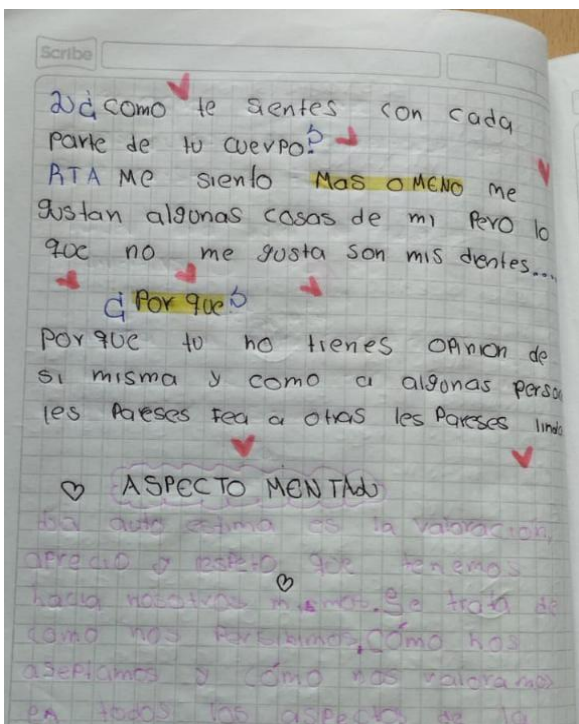 Scribe
2) ¿como te sientes con cada
parte de tu cuerpo?
RTA Me siento Mas o MeNo me
gustan algunas cosas de mi Pero lo
que no me gusta son mis dientes....
¿Por que?
Porque tu no tienes opinion de
si misma y como a algunas perso
les Pareses fea a otras les Pareses linda
ASPECTO MENTAL
La auto estima es la valoracion,
aprecio y respeto que tenemos
hacia nosotros mismos. Se trata de
como nos persibimos, cómo nos
aseptamos y cómo nos valoramos
en todos los aspectos de la